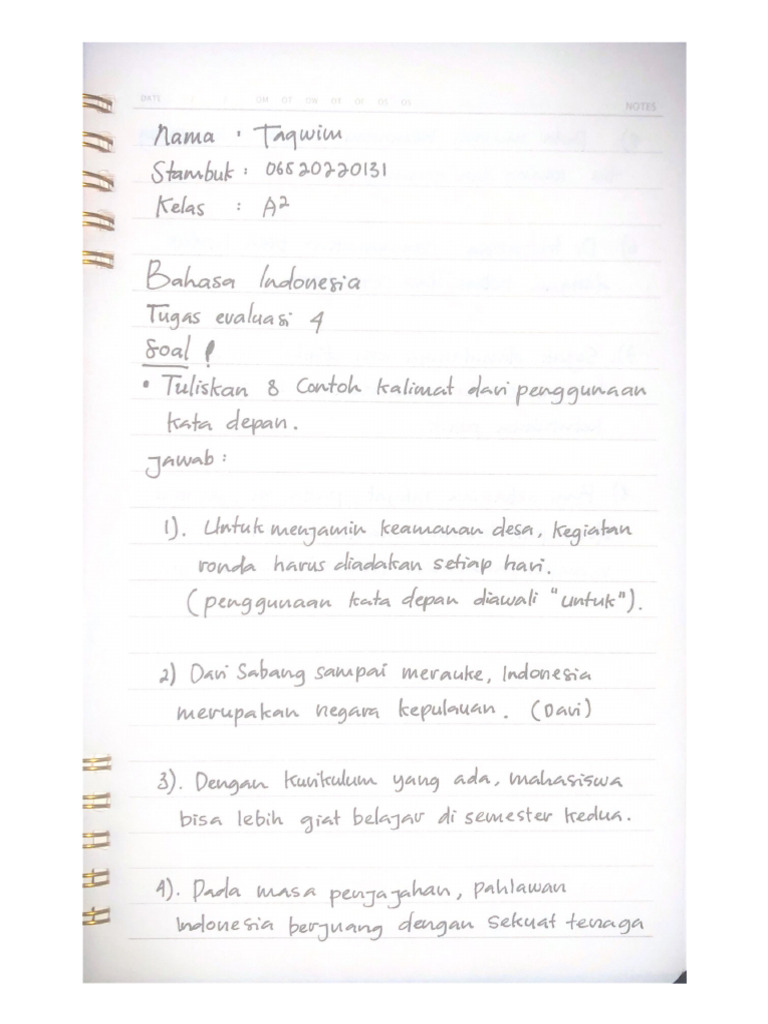 DATE
NOTES
Nama : Taqwim
Stambuk : 06520220131
Kelas : A2
Bahasa Indonesia
Tugas evaluasi 4
Soal !
• Tuliskan 8 Contoh kalimat dari penggunaan
kata depan.
Jawab :
1). Untuk menjamin keamanan desa, kegiatan
ronda harus diadakan setiap hari.
(penggunaan kata depan diawali "untuk").
2) Dari Sabang sampai merauke, Indonesia
merupakan negara kepulauan. (Dari)
3). Dengan kurikulum yang ada, mahasiswa
bisa lebih giat belajar di semester kedua.
4). Pada masa penjajahan, pahlawan
Indonesia berjuang dengan sekuat tenaga